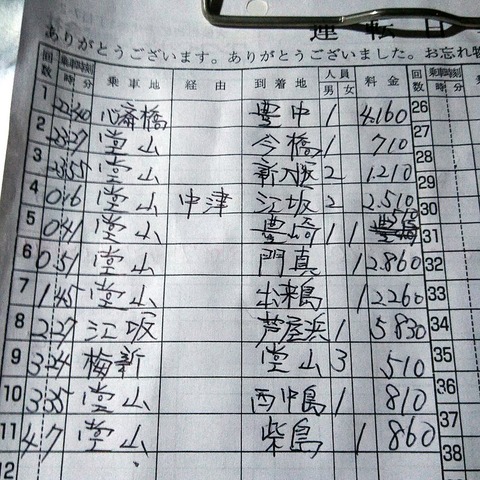 運転日
ありがとうございます。ありがとうございました。お忘れ物
回数 乗車時刻 時 分 乗車地 経由 到着地 人員 男 女 料金 回数 乗車時刻 時 分
1 心斎橋 豊中 1 4.160 26
2 堂山 今橋 1 710 27
3 23 55 堂山 新大阪 2 1.210 28
4 0 16 堂山 中津 江坂 2 2.510 29
5 0 41 堂山 豊崎 1 1 510 30
6 0 51 堂山 門真 1 2.860 31
7 1 45 堂山 出来島 1 2260 32
8 2 27 江坂 芦屋浜 1 5830 33
9 3 24 梅新 堂山 3 510 34
10 3 35 堂山 西中島 1 810 35
11 4 7 堂山 柴島 1 860 36
12 37
38